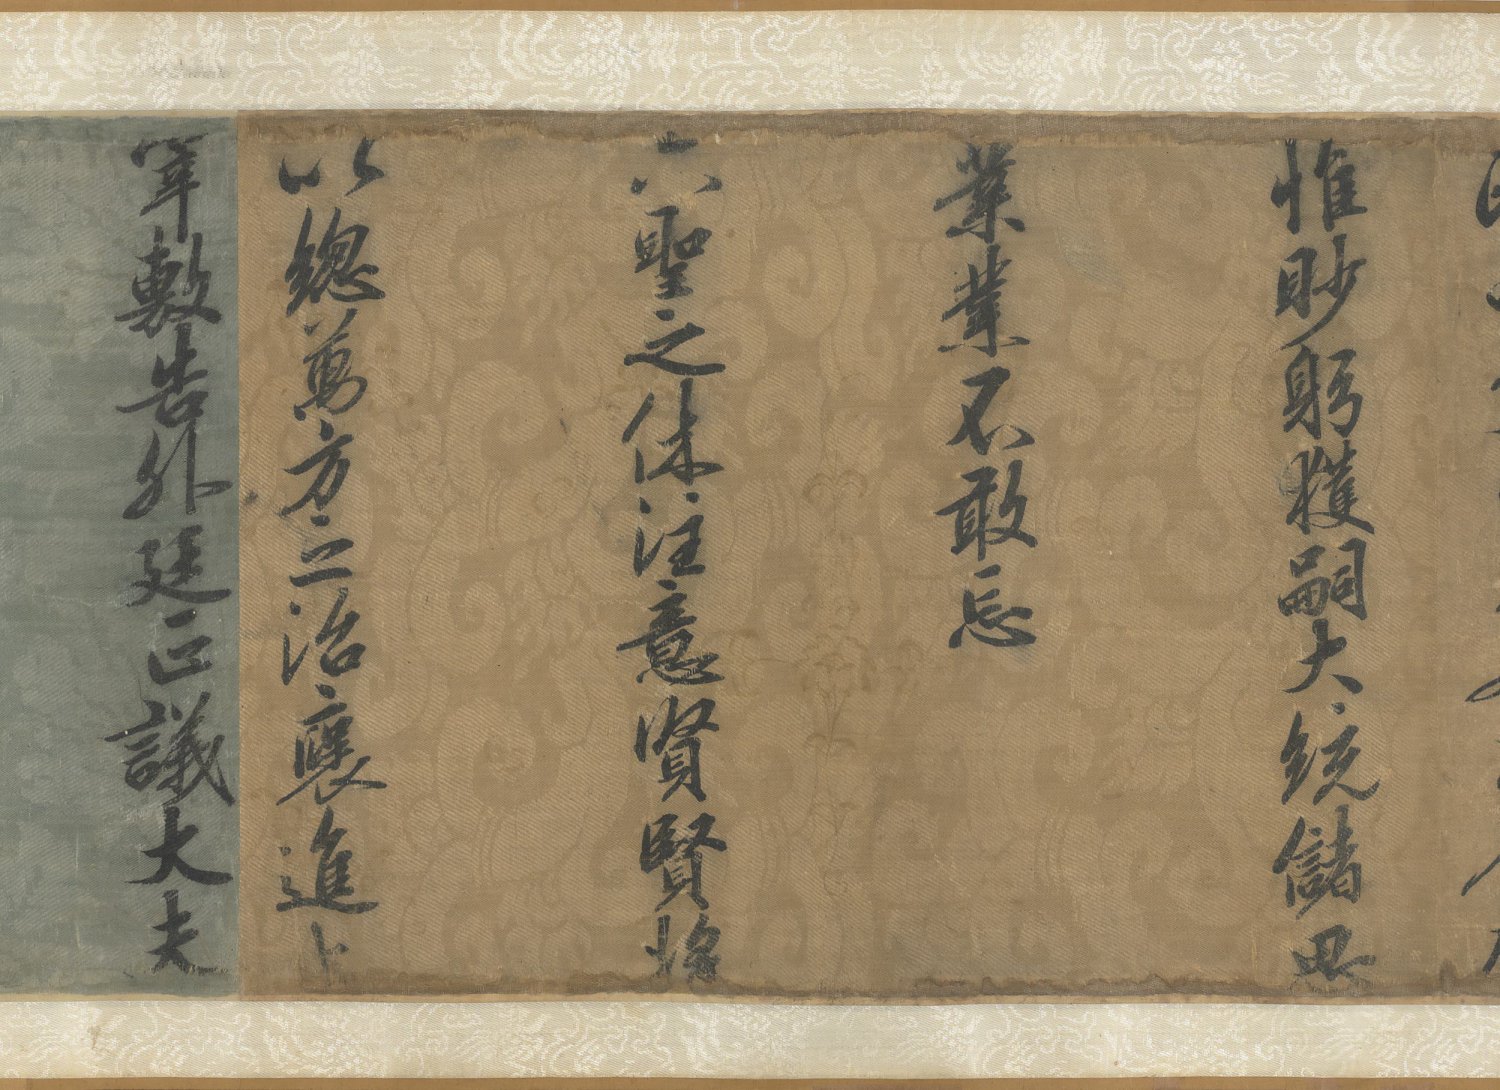 惟眇躬獲嗣大統儲思
業業不敢忘
六聖之休注意賢賢將
以總萬方之治襃進上
宰敷告外廷正議大夫